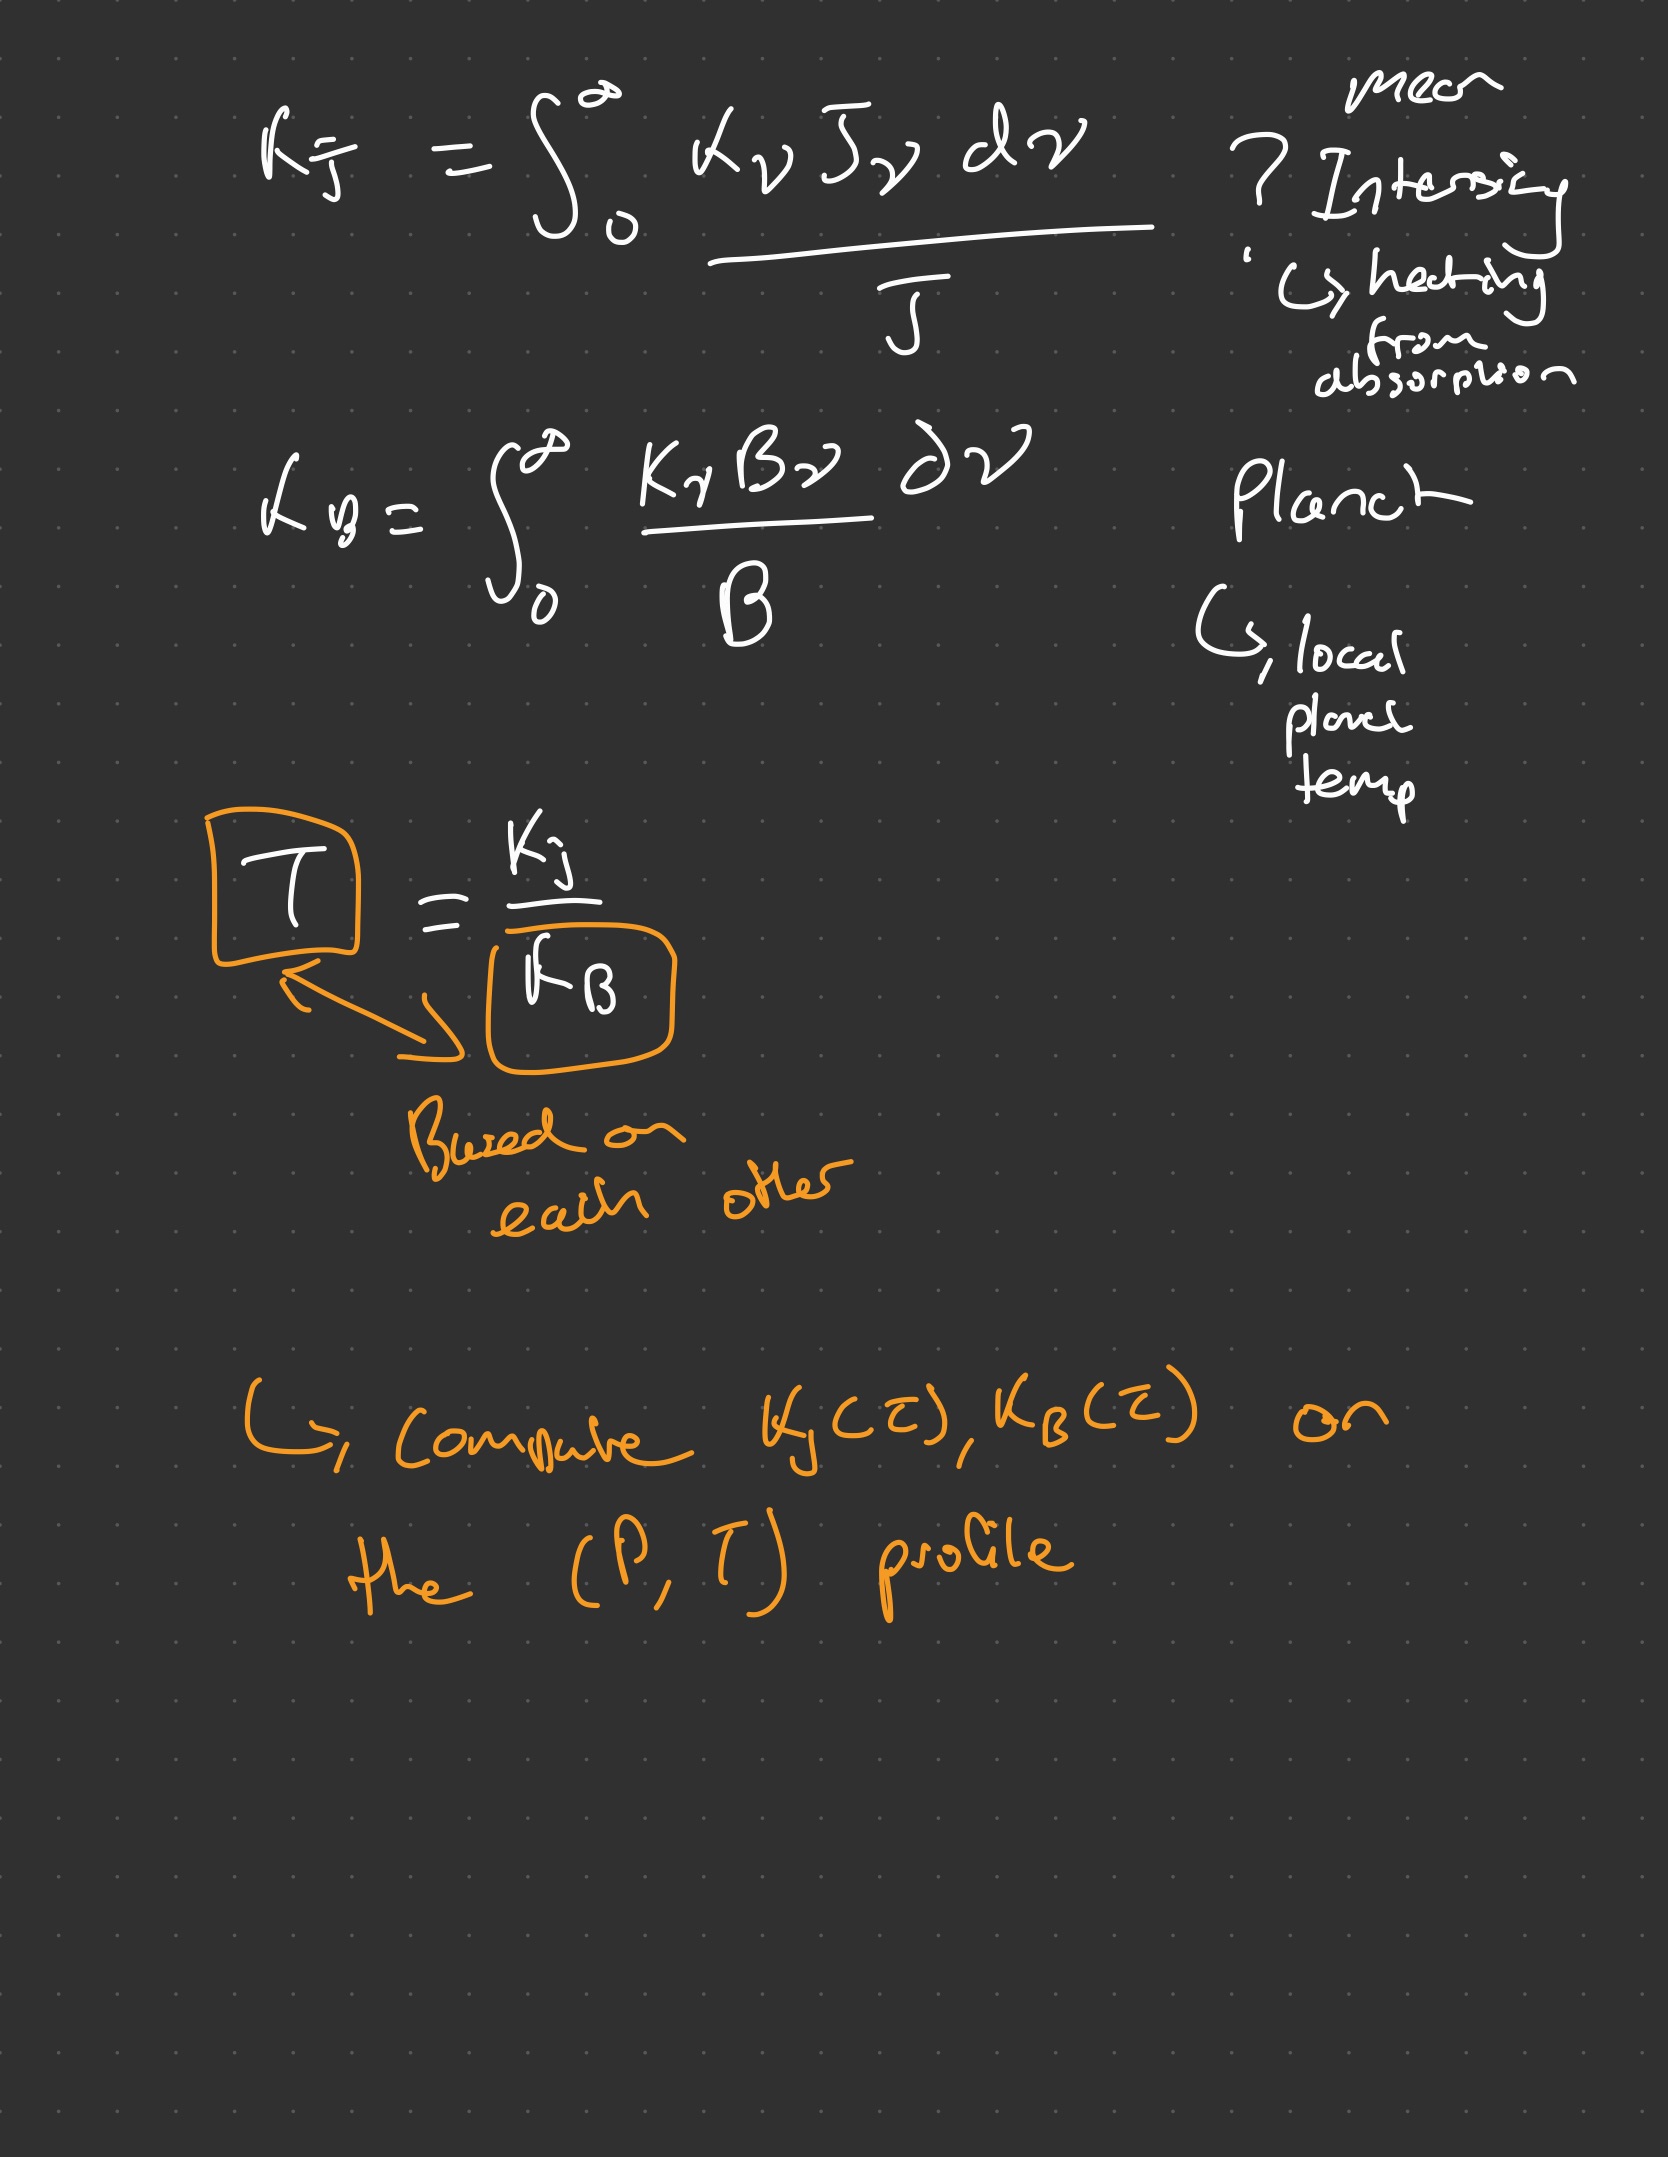 mean
K_J = ∫_0^∞ K_ν J_ν dν / J ? Intensity
↳ heating
from
absorption
K_B = ∫_0^∞ K_ν B_ν ∂ν / B Planck
↳ local
planet
temp
T = K_J / K_B
Based on
each other
↳ Compute K_J(τ), K_B(τ) on
the (P, T) profile